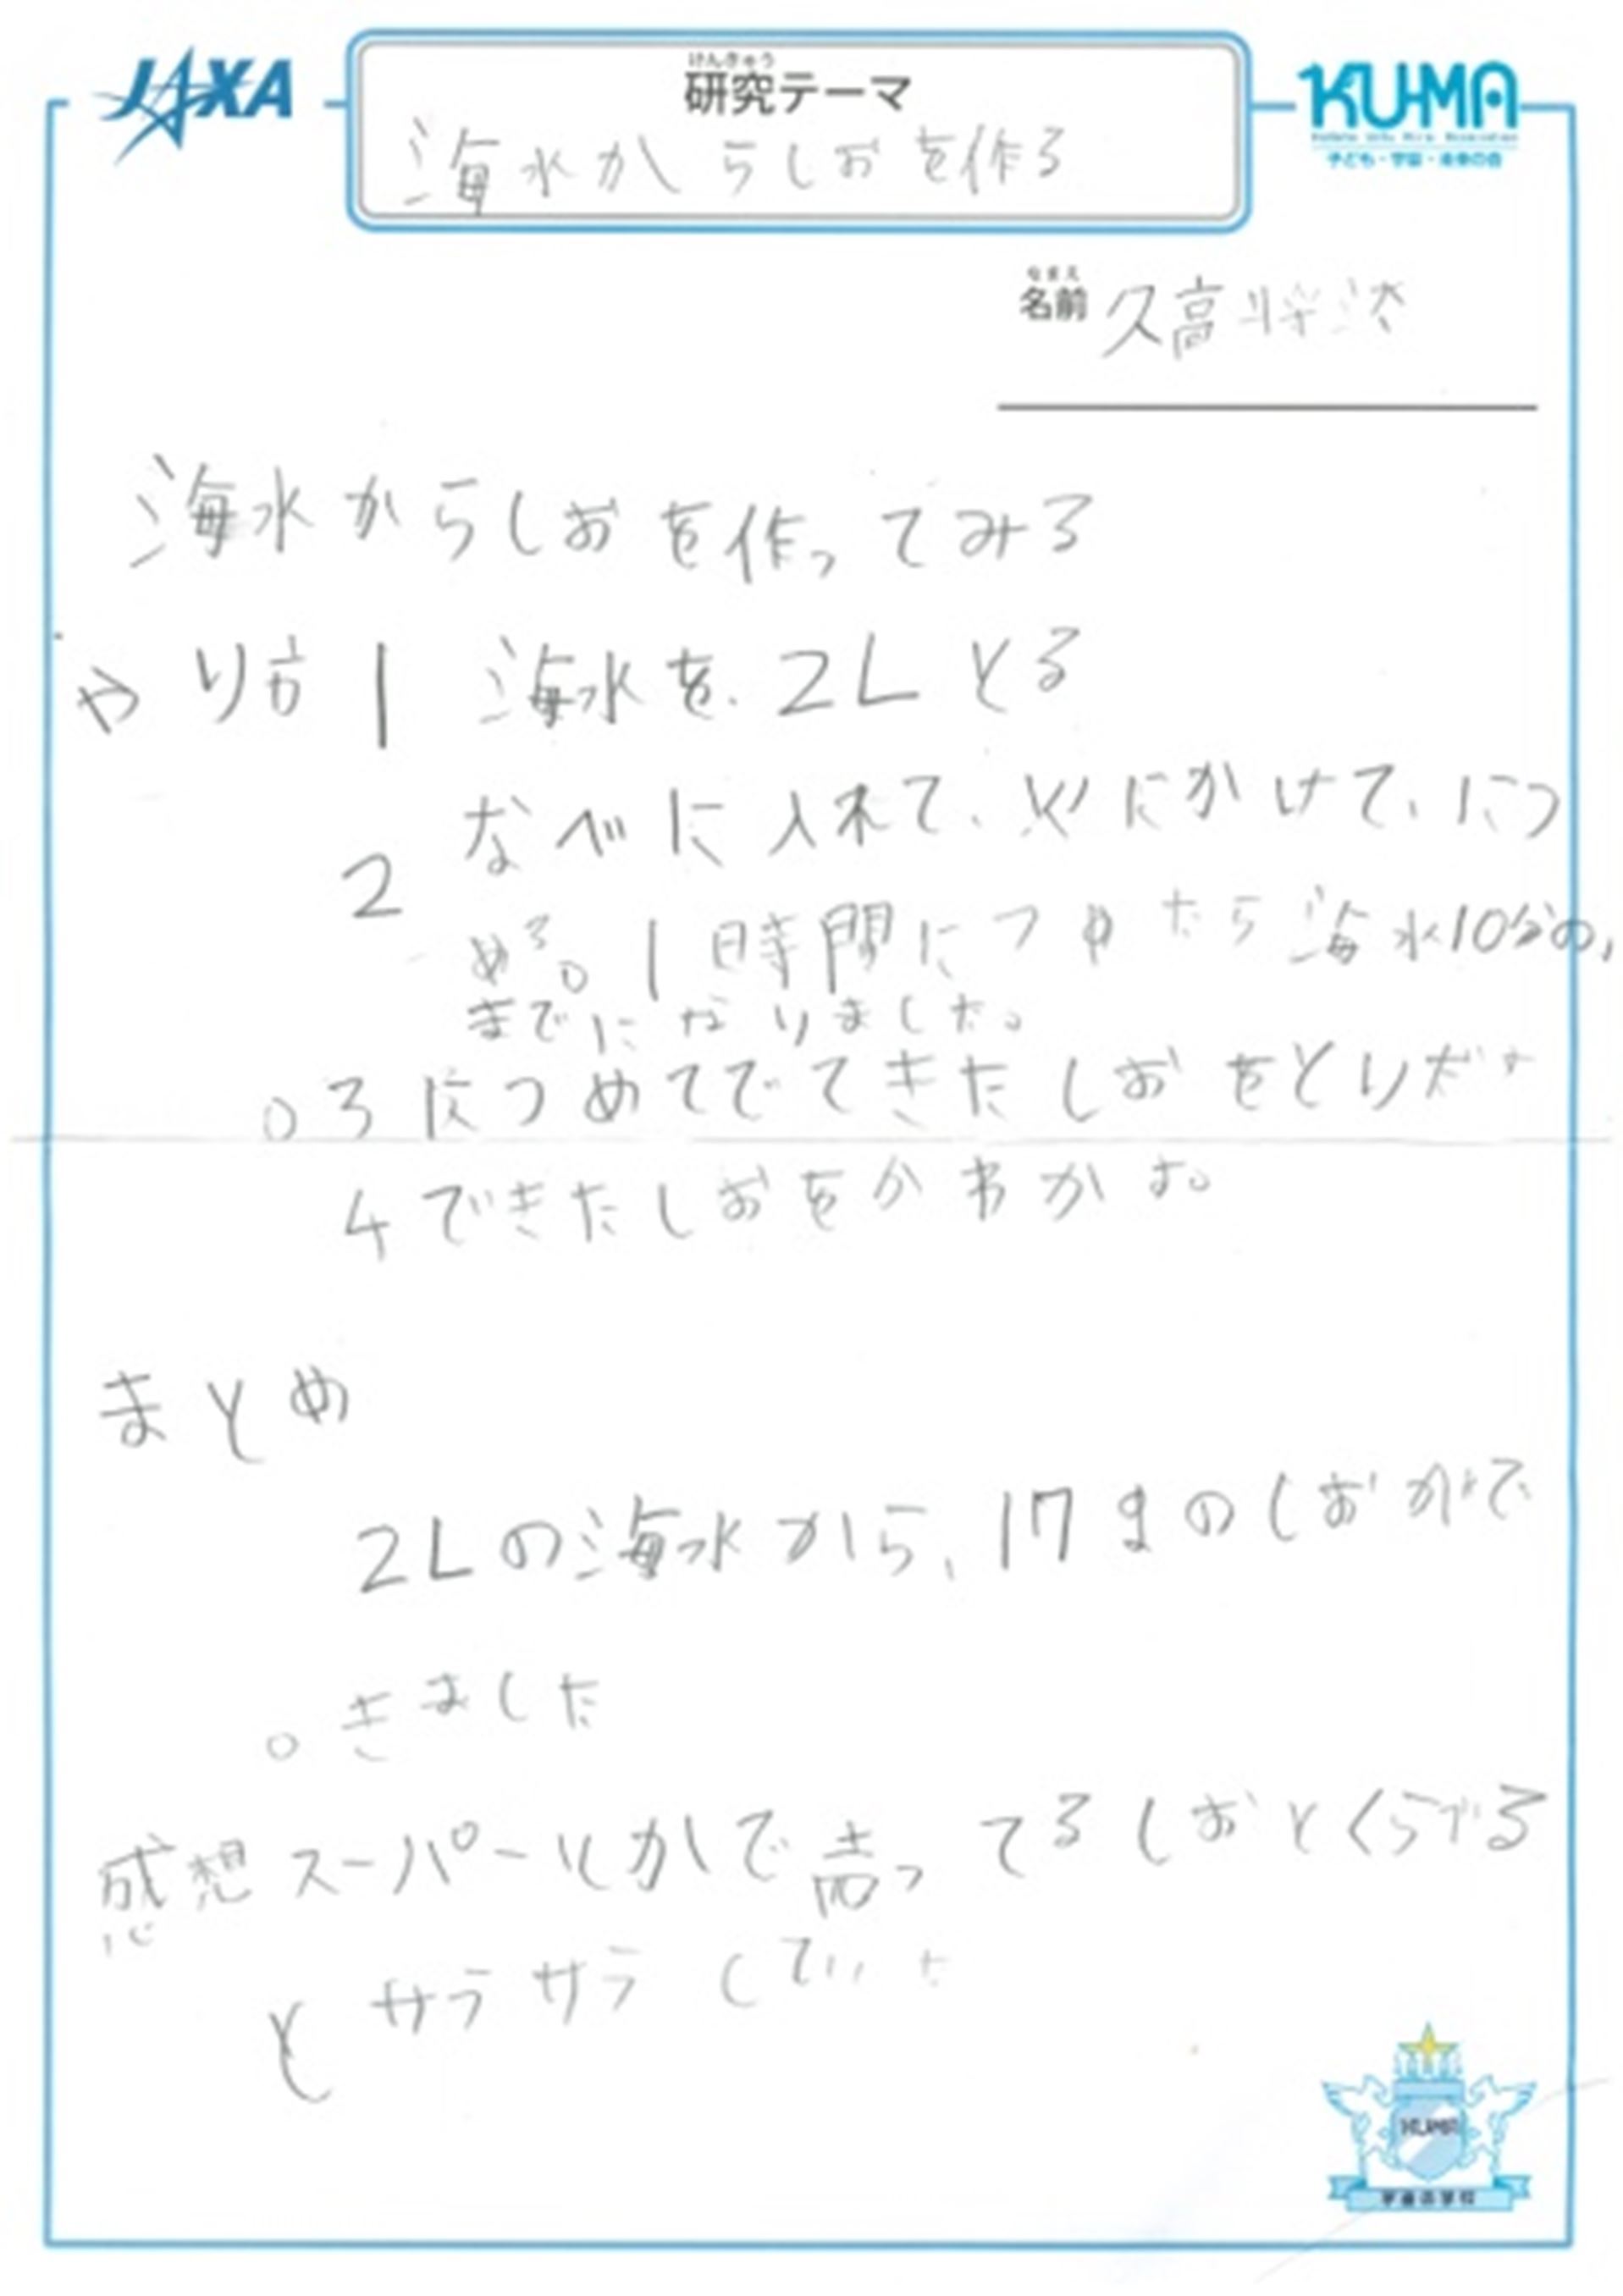 JAXA
けんきゅう
研究テーマ
KUMA
子ども・宇宙・未来の会
海水からしおを作る
なまえ
名前 久高
海水からしおを作ってみる
やり方 1 海水を、2Lとる
2 なべに入れて、火にかけて、につ
める。1時間につめたら海水10分の1
までになりました。
。3 につめてでてきたしおをとりだす
4 できたしおをかわかす。
まとめ
2Lの海水から、17gのしおがで
。きました
感想 スーパーとかで売ってるしおとくらべる
とサラサラしていた
KUMA
宇宙の学校